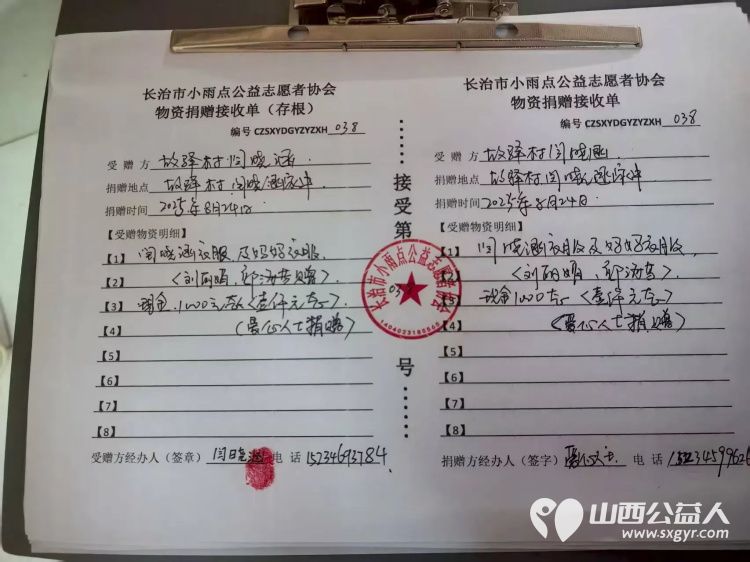 长治市小雨点公益志愿者协会
物资捐赠接收单（存根）
编号 CZSXYDGYZYZXH 038
受赠方 故驿村闫晓涵
捐赠地点 故驿村闫晓涵家中
捐赠时间 2025年8月24日
【受赠物资明细】
【1】 闫晓涵衣服及妈妈衣服
【2】
【3】 现金1000元 <壹仟元>
【4】 (爱心人士捐赠)
【5】
【6】
【7】
【8】
受赠方经办人（签章） 闫晓涵 电话 15234693784
接受第
03
号
长治市小雨点公益志愿者协会
长治市小雨点公益志愿者协会
物资捐赠接收单
编号 CZSXYDGYZYZXH 038
受赠方 故驿村闫晓涵
捐赠地点 故驿村闫晓涵家中
捐赠时间 2025年8月24日
【受赠物资明细】
【1】 闫晓涵衣服及妈妈衣服
【2】
【3】 现金1000 <壹仟元>
【4】 <爱心人士捐赠>
【5】
【6】
【7】
【8】
捐赠方经办人（签字） 爱心人士 电话
山西公益人
www.sxgyr.com